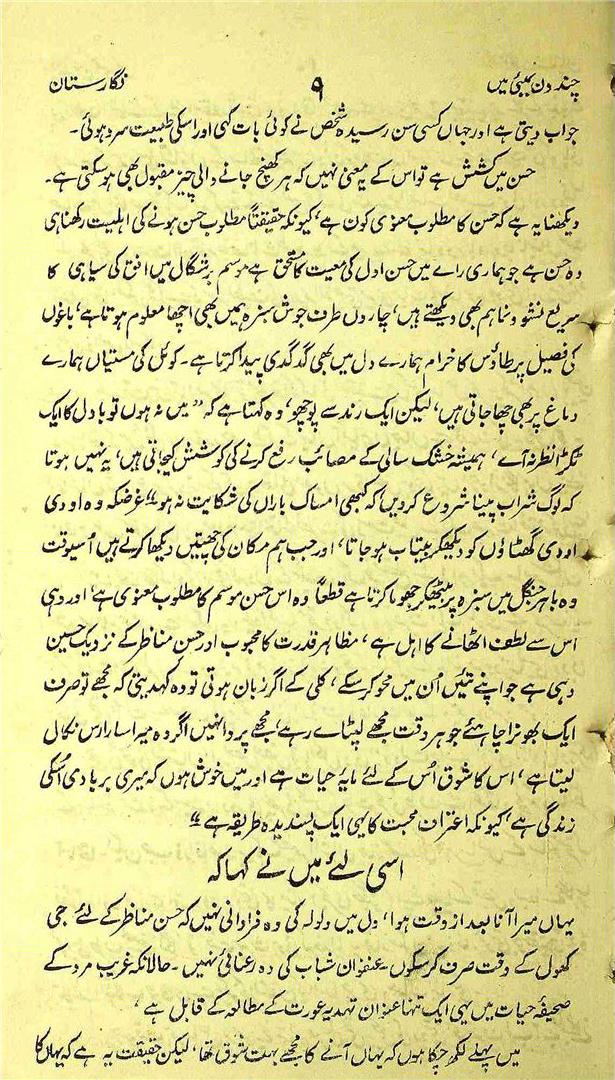 چند دن بمبئی میں ۹ نگارستان
جواب دیتی ہے اور جہاں کسی سن رسیدہ شخص نے کوئی بات کہی اور اسکی طبیعت سرد ہوئی۔
حسن میں کشش ہے تو اس کے یہ معنی نہیں کہ ہر کھنچ جانے والی چیز مقبول بھی ہو سکتی ہے۔
دیکھنا یہ ہے کہ حسن کا مطلوب معنوی کون ہے، کیونکہ حقیقتاً مطلوب حسن ہونے کی اہلیت رکھنا ہی
وہ حسن ہے جو ہماری راے میں حسن اول کی معیت کا مستحق ہے موسم برشگال میں افق کی سیاہی کا
سریع نشو و نما ہم بھی دیکھتے ہیں، چاروں طرف جوش سبزہ ہمیں بھی اچھا معلوم ہوتا ہے، باغوں
کی فصیل پر طاؤس کا خرام ہمارے دل میں بھی گدگدی پیدا کرتا ہے۔ کوئل کی مستیاں ہمارے
دماغ پر بھی چھا جاتی ہیں، لیکن ایک رند سے پوچھو، وہ کہتا ہے کہ "میں نہ ہوں تو بادل کا ایک
ٹکڑا نظر نہ آے، ہمیشہ خشک سالی کے مصائب رفع کرنے کی کوشش کیجاتی ہیں، یہ نہیں ہوتا
کہ لوگ شراب پینا شروع کر دیں، کہ کبھی امساک باراں کی شکایت نہ ہو" غرضکہ وہ اودی
اودی گھٹاؤں کو دیکھکر بیتاب ہو جاتا، اور جب ہم مکان کی چھتیں دیکھا کرتے ہیں اُسیوقت
وہ باہر جنگل میں سبزہ پر بیٹھکر جھوما کرتا ہے قطعاً وہ اس حسن موسم کا مطلوب معنوی ہے، اور وہی
اس سے لطف اٹھانے کا اہل ہے، مظاہر قدرت کا محبوب اور حسن مناظر کے نزدیک حسین
وہی ہے جو اپنے تئیں اُن میں محو کر سکے، کلی کے اگر زبان ہوتی تو وہ کہدیتی کہ مجھے تو صرف
ایک بھونرا چاہئے جو ہر وقت مجھے لپٹاے رہے، مجھے پروا نہیں اگر وہ میرا سارا رس نکال
لیتا ہے، اس کا شوق اُس کے لئے مایۂ حیات ہے اور میں خوش ہوں کہ میری بربادی اُسکی
زندگی ہے، کیونکہ اعتراف محبت کا یہی ایک پسندیدہ طریقہ ہے"
اسی لئے میں نے کہا کہ
یہاں میرا آنا بعد از وقت ہوا، دل میں ولولہ کی وہ فراوانی نہیں کہ حسن مناظر کے لئے جی
کھول کے وقت صرف کر سکوں۔ عنفوان شباب کی وہ رعنائی نہیں۔ حالانکہ غریب مرد کے
صحیفۂ حیات میں یہی ایک تنہا عنوان تہدیہ عورت کے مطالعہ کے قابل ہے،
میں پہلے لکھ چکا ہوں کہ یہاں آنے کا مجھے بہت شوق تھا، لیکن حقیقت یہ ہے کہ یہاں کا